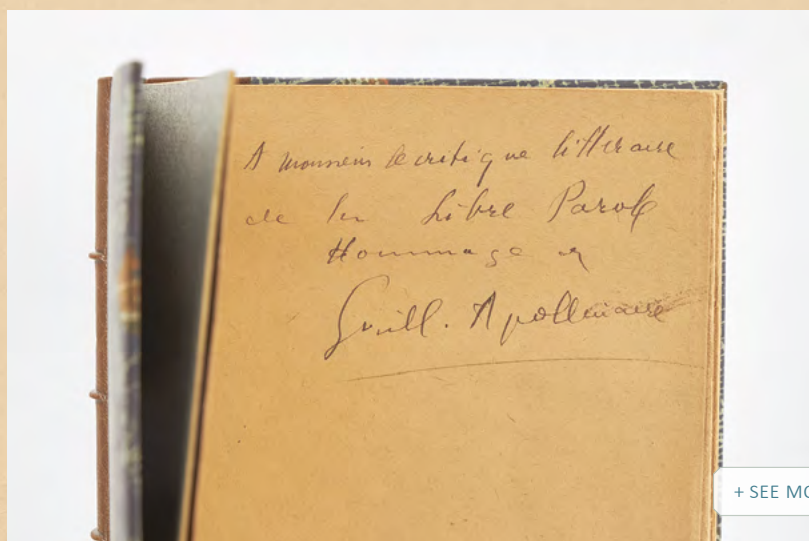 A monsieur le critique littéraire
de la Libre Parole
Hommage de
Guill. Apollinaire
+ SEE MO